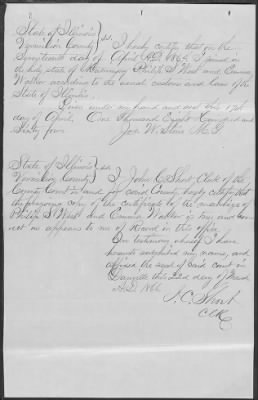 State of Illinois
Vermilion County } SS. I hereby certify that on the
Seventeenth day of April A.D. 1864 I joined in
the holy state of Matrimony Philip S. West and Emma
Walker according to the usual custom and laws of the
State of Illinois.
Given under my hand and seal this 17th
day of April. One Thousand Eight Hundred and
Sixty four. M.G.
State of Illinois } SS
Vermilion County I John C. Short, Clerk of the
County Court in and for said County hereby certify that
the foregoing copy of the certificate of the marriage of
Philip S. West and Emma Walker is true and cor-
rect as appears to me of Record in this office.
In testimony whereof I have
hereunto subscribed my name, and
affixed the seal of said court in
Danville this 22d day of
A.D. 186
J. C. Short
Clk